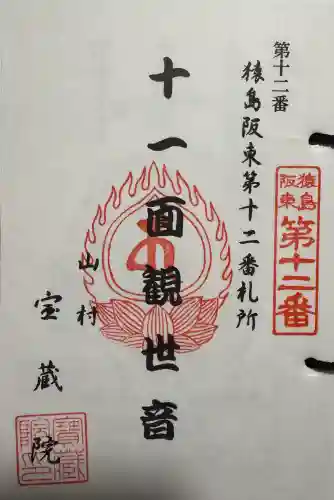 第十二番
猿島阪東第十二番札所
猿島
阪東
第十二番
十一面觀世音
山村
宝蔵院